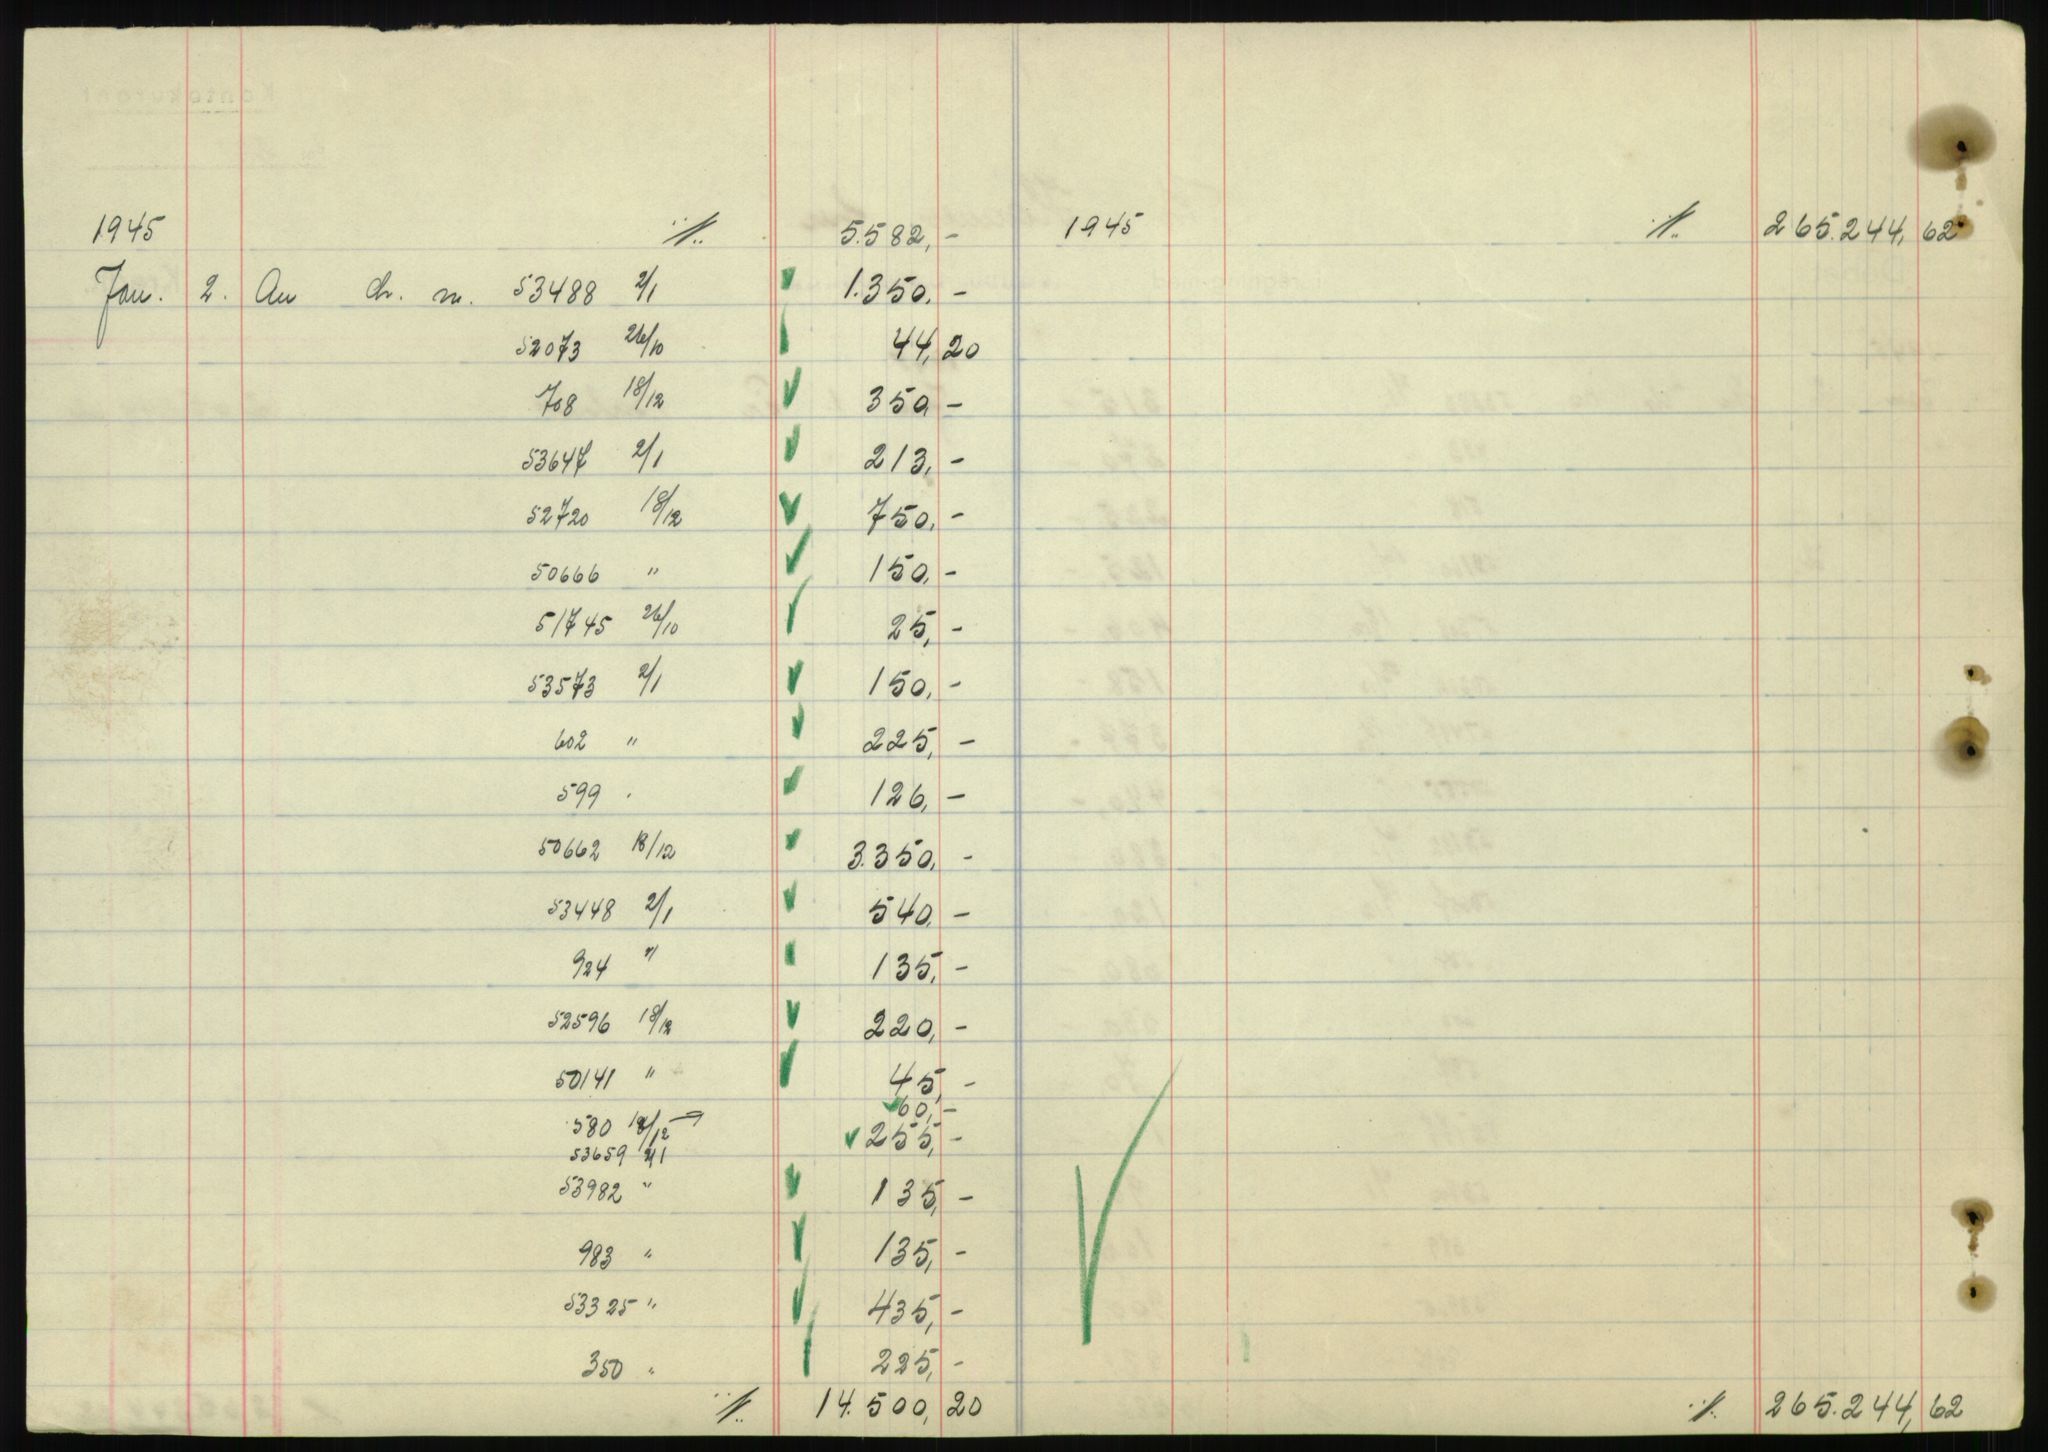 1945 ./. 5.582,-
Jan. 2. An ch. nr. 53488 2/1 1.350,-
52073 26/10 44,20
708 18/12 350,-
53647 2/1 213,-
52720 18/12 750,-
50666 " 150,-
51745 26/10 25,-
53573 2/1 150,-
602 " 225,-
599 " 126,-
50662 18/12 3.350,-
53448 2/1 540,-
924 " 135,-
52596 18/12 220,-
50141 " 45,-
580 18/12 60,-
53659 2/1 255,-
53982 " 135,-
983 " 135,-
53325 " 435,-
350 " 225,-
./. 14.500,20
1945 ./. 265.244,62
./. 265.244,62